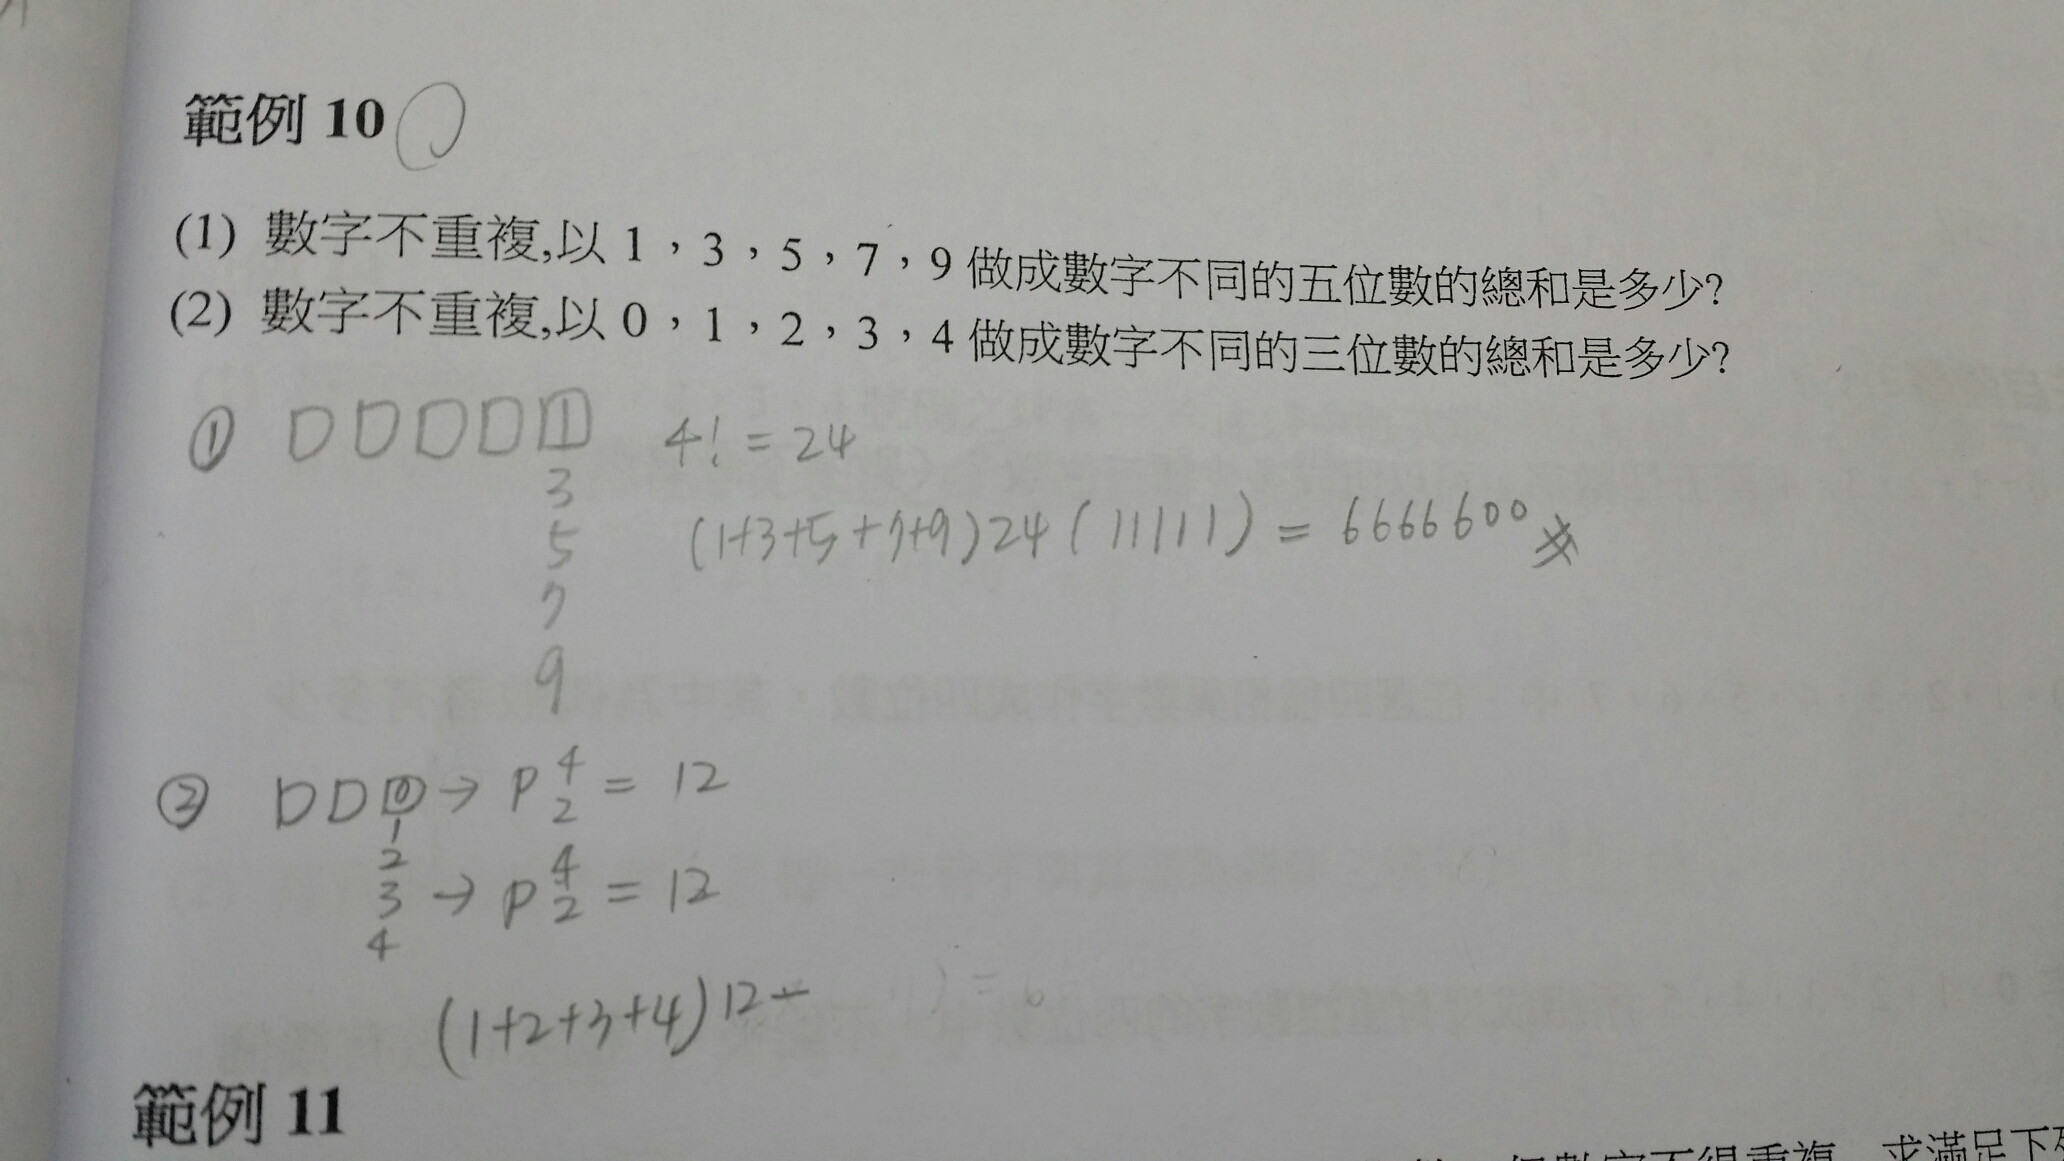 範例 10
(1) 數字不重複,以 1，3，5，7，9 做成數字不同的五位數的總和是多少?
(2) 數字不重複,以 0，1，2，3，4 做成數字不同的三位數的總和是多少?
① □□□□1 4! = 24
3
5
7
9
(1+3+5+7+9)24(11111) = 6666600
② □□0 → P 4 2 = 12
1
2
3 → P 4 2 = 12
4
(1+2+3+4)12
範例 11